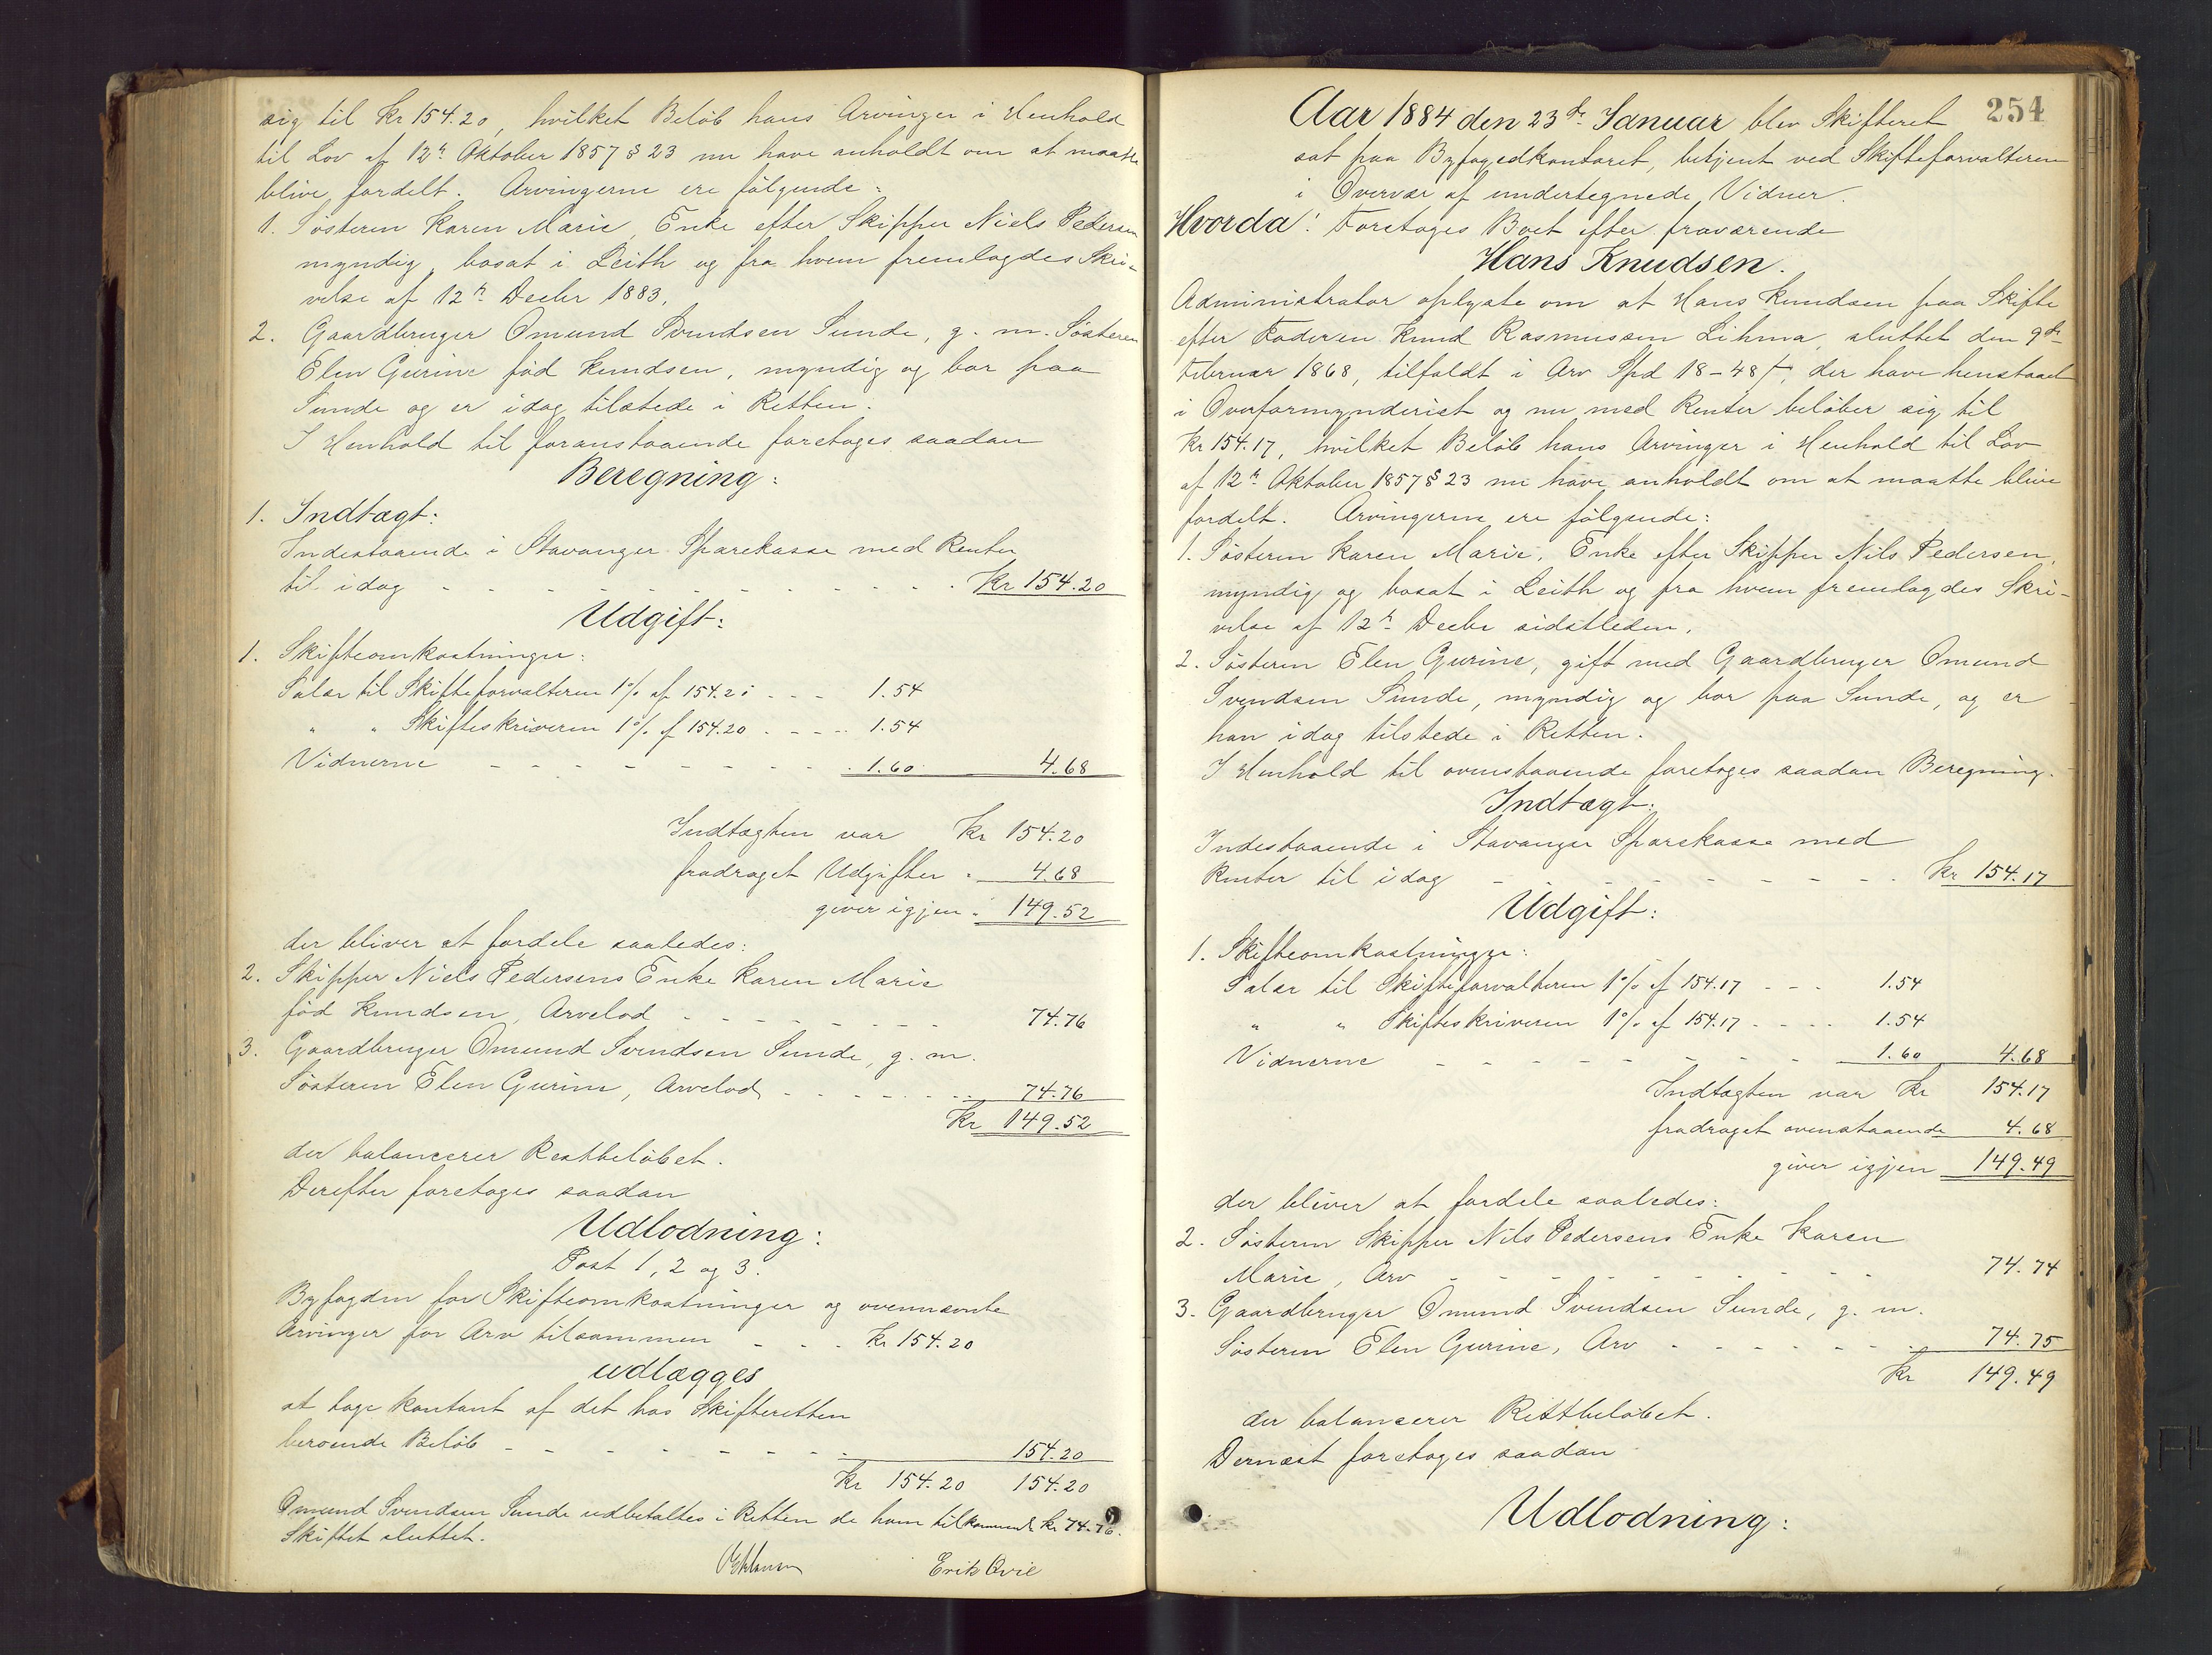 sig til Kr 154.20, hvilket Beløb hans Arvinger i Henhold
til Lov af 12te Oktober 1857 § 23 nu have anholdt om at maatte
blive fordelt. Arvingerne ere følgende:
1. Søsteren Karen Marie, Enke efter Skipper Niels Pedersen
myndig, bosat i Leith og fra hvem fremlagdes Skri-
velse af 12te Decbr 1883.
2. Gaardbruger Omund Svendsen Sunde, g. m. Søsteren
Elen Gurine fød Knudsen, myndig og bor paa
Sunde og er idag tilstede i Retten.
I Henhold til foranstaaende foretoges saadan
Beregning:
1. Indtægt:
Indestaaende i Stavanger Sparekasse med Renter
til idag - - - - Kr 154.20
Udgift:
1. Skifteomkostninger:
Salær til Skifteforvalteren 1% af 154.20 - - - 1.54
" " Skifteskriveren 1% af 154.20 - - - - 1.54
Vidnerne - - - - - - - - 1.60 4.68
Indtægten var Kr 154.20
fradraget Udgifter " 4.68
giver igjen " 149.52
der bliver at fordele saaledes:
2. Skipper Niels Pedersens Enke Karen Marie
fød Knudsen, Arvelod - - - - - - - - 74.76
3. Gaardbruger Omund Svendsen Sunde, g. m.
Søsteren Elen Gurine, Arvelod - - - - - - 74.76
Kr 149.52
der balancerer Restbeløbet.
Derefter foretoges saadan
Udlodning:
Post 1, 2 og 3.
Byfogden for Skifteomkostninger og ovennævnte
Arvinger for Arv tilsammen - - - Kr 154.20
udlægges
at tage kontant af det hos Skifteretten
beroende Beløb - - - - - - - - 154.20
Kr 154.20 154.20
Omund Svendsen Sunde udbetaltes i Retten de ham tilkommende Kr 74.76.
Skiftet sluttet.
Erik Qvie
254
Aar 1884 den 23de Januar blev Skifteret
sat paa Byfogedkontoret, betjent ved Skifteforvalteren
i Overvær af undertegnede Vidner.
Hvorda: Foretoges Boet efter fraværende
Hans Knudsen.
Administrator oplyste om at Hans Knudsen paa Skifte
efter Faderen Knud Rasmussen Lihma, sluttet den 9de
Februar 1868, tilfaldt i Arv Spd 18-48 ß, der have henstaaet
i Overformynderiet og nu med Renter beløber sig til
Kr 154.17, hvilket Beløb hans Arvinger i Henhold til Lov
af 12te Oktober 1857 § 23 nu have anholdt om at maatte blive
fordelt. Arvingerne ere følgende:
1. Søsteren Karen Marie, Enke efter Skipper Nils Pedersen,
myndig og bosat i Leith og fra hvem fremlagdes Skri-
velse af 12te Decbr sidstleden.
2. Søsteren Elen Gurine, gift med Gaardbruger Omund
Svendsen Sunde, myndig og bor paa Sunde, og er
han idag tilstede i Retten.
I Henhold til ovenstaaende foretoges saadan Beregning.
Indtægt:
Indestaaende i Stavanger Sparekasse med
Renter til idag - - - - - - - Kr 154.17
Udgift:
1. Skifteomkostninger:
Salær til Skifteforvalteren 1% af 154.17 - - - 1.54
" " Skifteskriveren 1% af 154.17 - - - - 1.54
Vidnerne - - - - - - - - 1.60 4.68
Indtægten var Kr 154.17
fradraget ovenstaaende 4.68
giver igjen 149.49
der bliver at fordele saaledes:
2. Søsteren Skipper Nils Pedersens Enke Karen
Marie, Arv - - - - - - - - 74.74
3. Gaardbruger Omund Svendsen Sunde, g. m.
Søsteren Elen Gurine, Arv - - - - - - 74.75
Kr 149.49
der balancerer Restbeløbet.
Dernæst foretoges saadan
Udlodning: